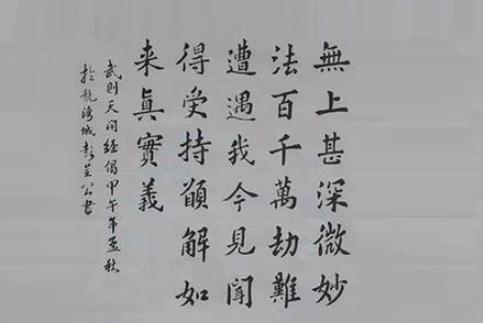 無上甚深微妙
法百千萬劫難
遭遇我今見聞
得受持願解如
来眞實義
武則天開經偈甲午年孟秋
於龍灣城彭公書